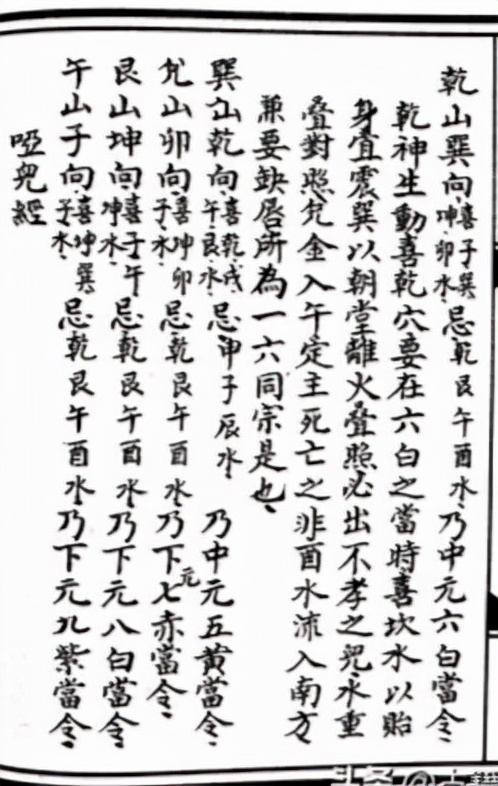 乾山巽向喜子巽坤卯水忌乾艮午酉水乃中元六白當令
乾神生動喜乾穴要在六白之當時喜坎水以貽
身宜震巽以朝堂離火叠照必出不孝之兒水重
叠對照兌金入午定主死亡之非酉水流入南方
兼要缺唇所為一六同宗是也
巽山乾向喜乾戌午艮水忌申子辰水乃中元五黃當令
兌山卯向喜坤卯子水忌乾艮午酉水乃下元七赤當令
艮山坤向喜子午坤水忌乾艮午酉水乃下元八白當令
午山子向喜坤巽子水忌乾艮午酉水乃下元九紫當令
啞兒經